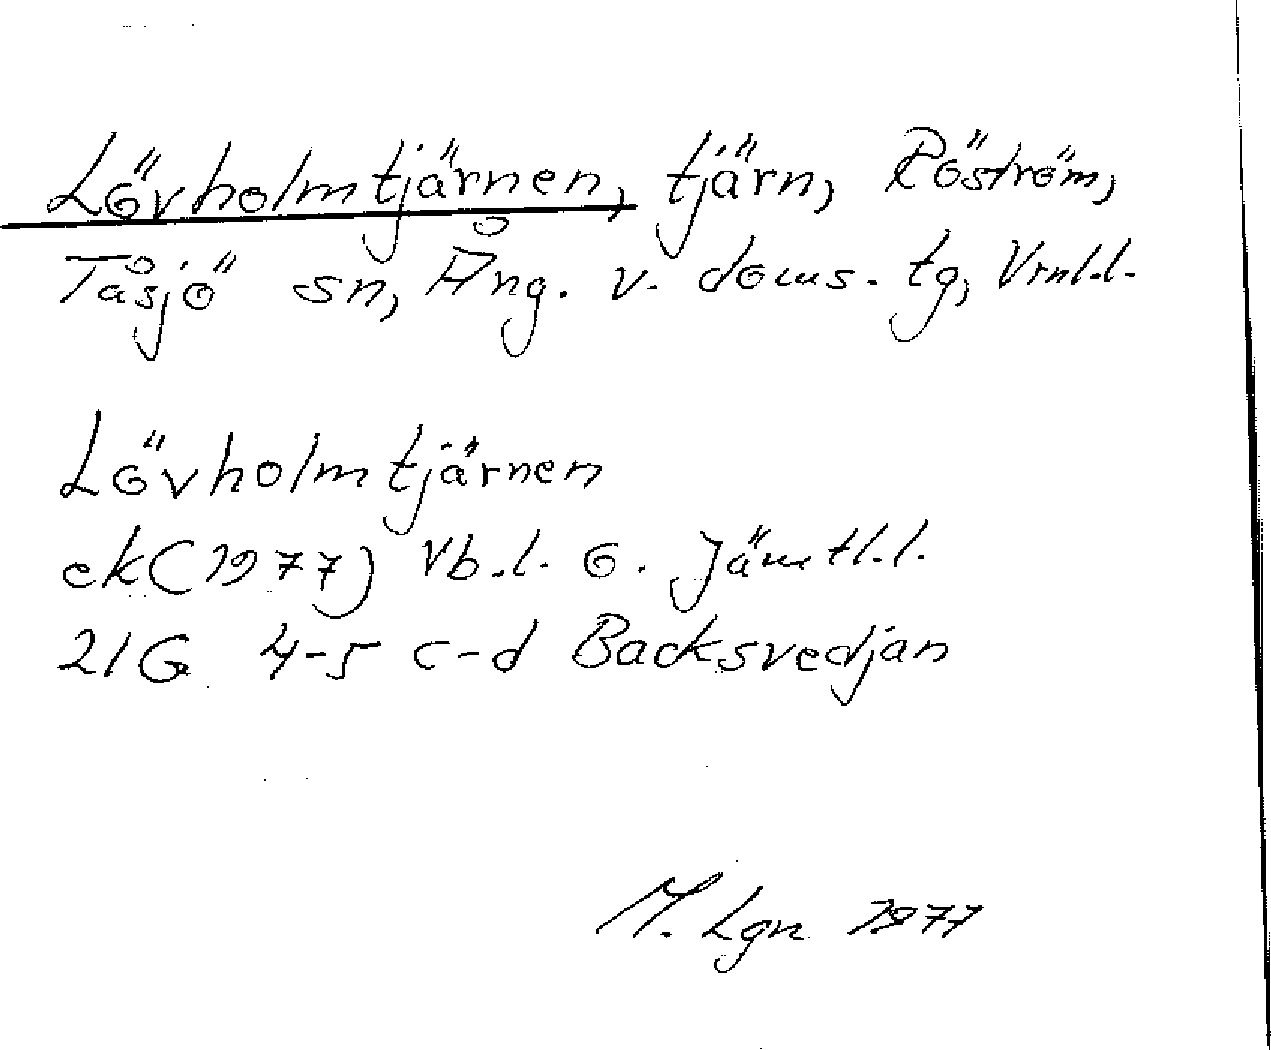 Lövholmtjärnen, tjärn, Röström,
Tåsjö sn, Ång. v. doms. tg, Vrnl.l.
Lövholmtjärnen
ek (1977) Vb.l. o. Jämtl.l.
21G 4-5 c-d Backsvedjan
M. Lgn 1977